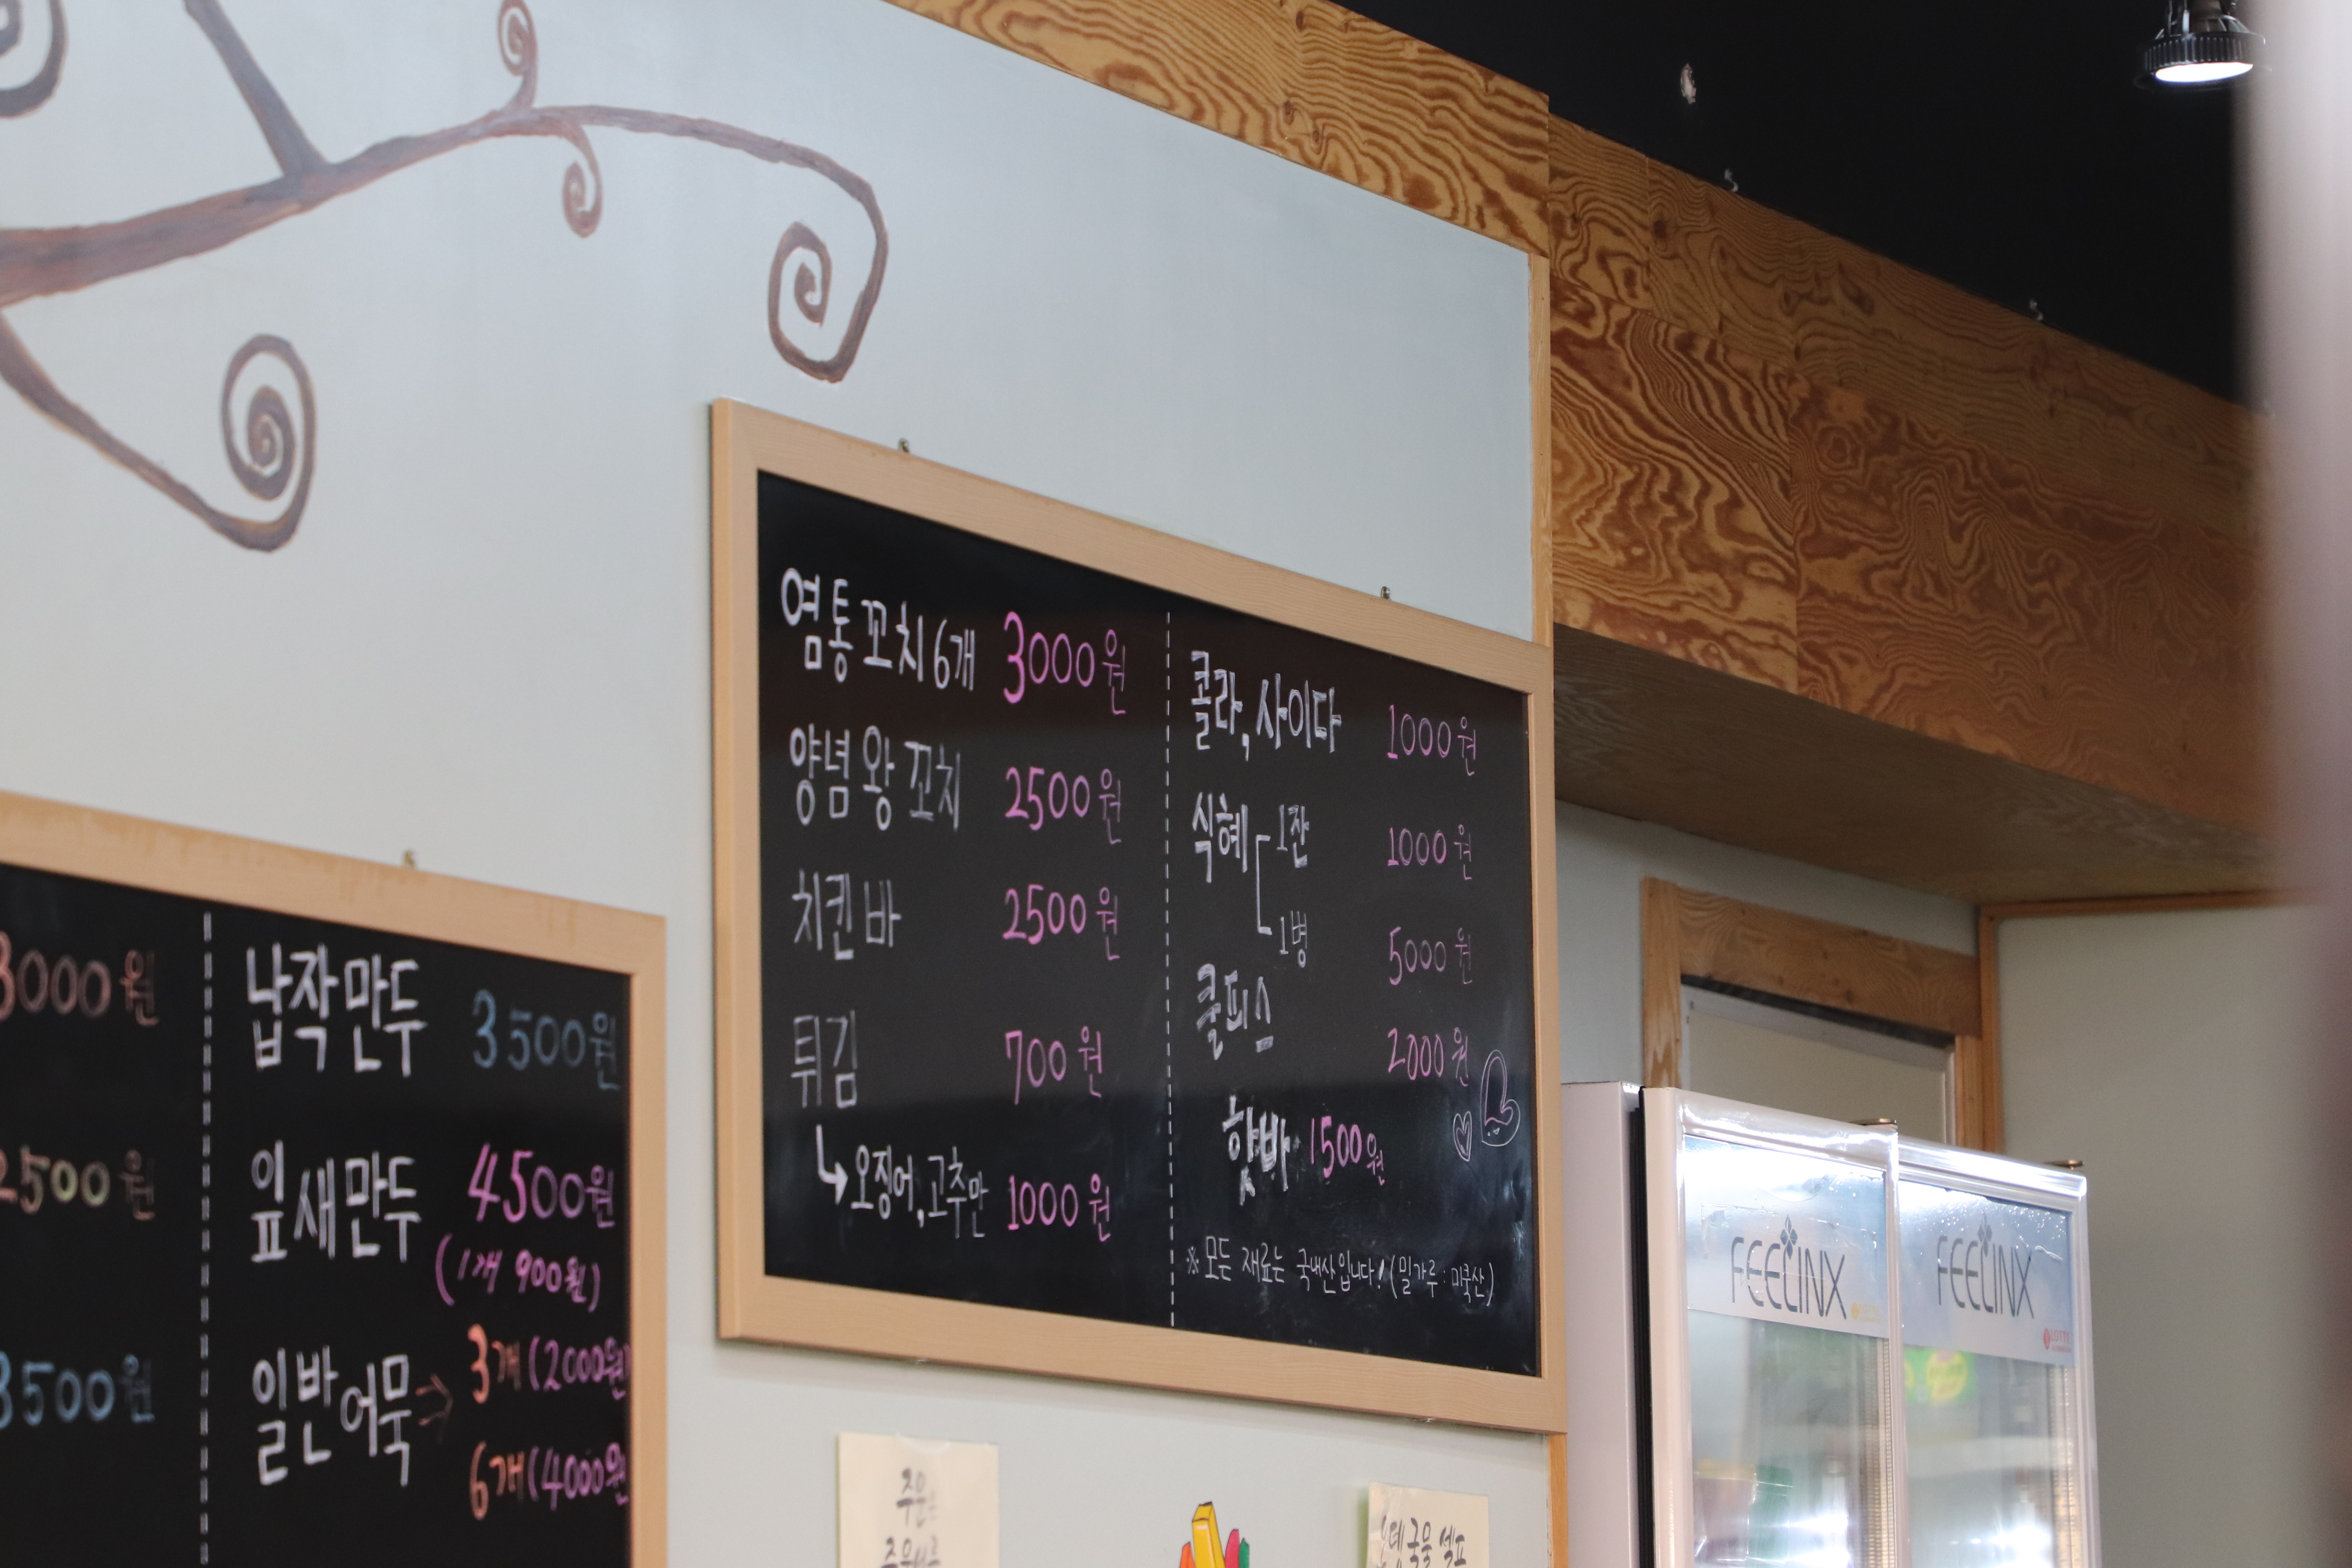 3000원
2500원
3500원
납작만두 3500원
잎새만두 4500원
(1개 900원)
일반어묵→ 3개(2000원)
6개(4000원
염통꼬치6개 3000원
양념왕꼬치 2500원
치킨바 2500원
튀김 700원
↳오징어,고추만 1000원
콜라,사이다 1000원
식혜 1잔 1000원
1병 5000원
쿨피스 2000원
핫바 1500원
※ 모든 재료는 국내산입니다! (밀가루 : 미국산)
오뎅국물 셀프
FEELINX
FEELINX
LOTTE